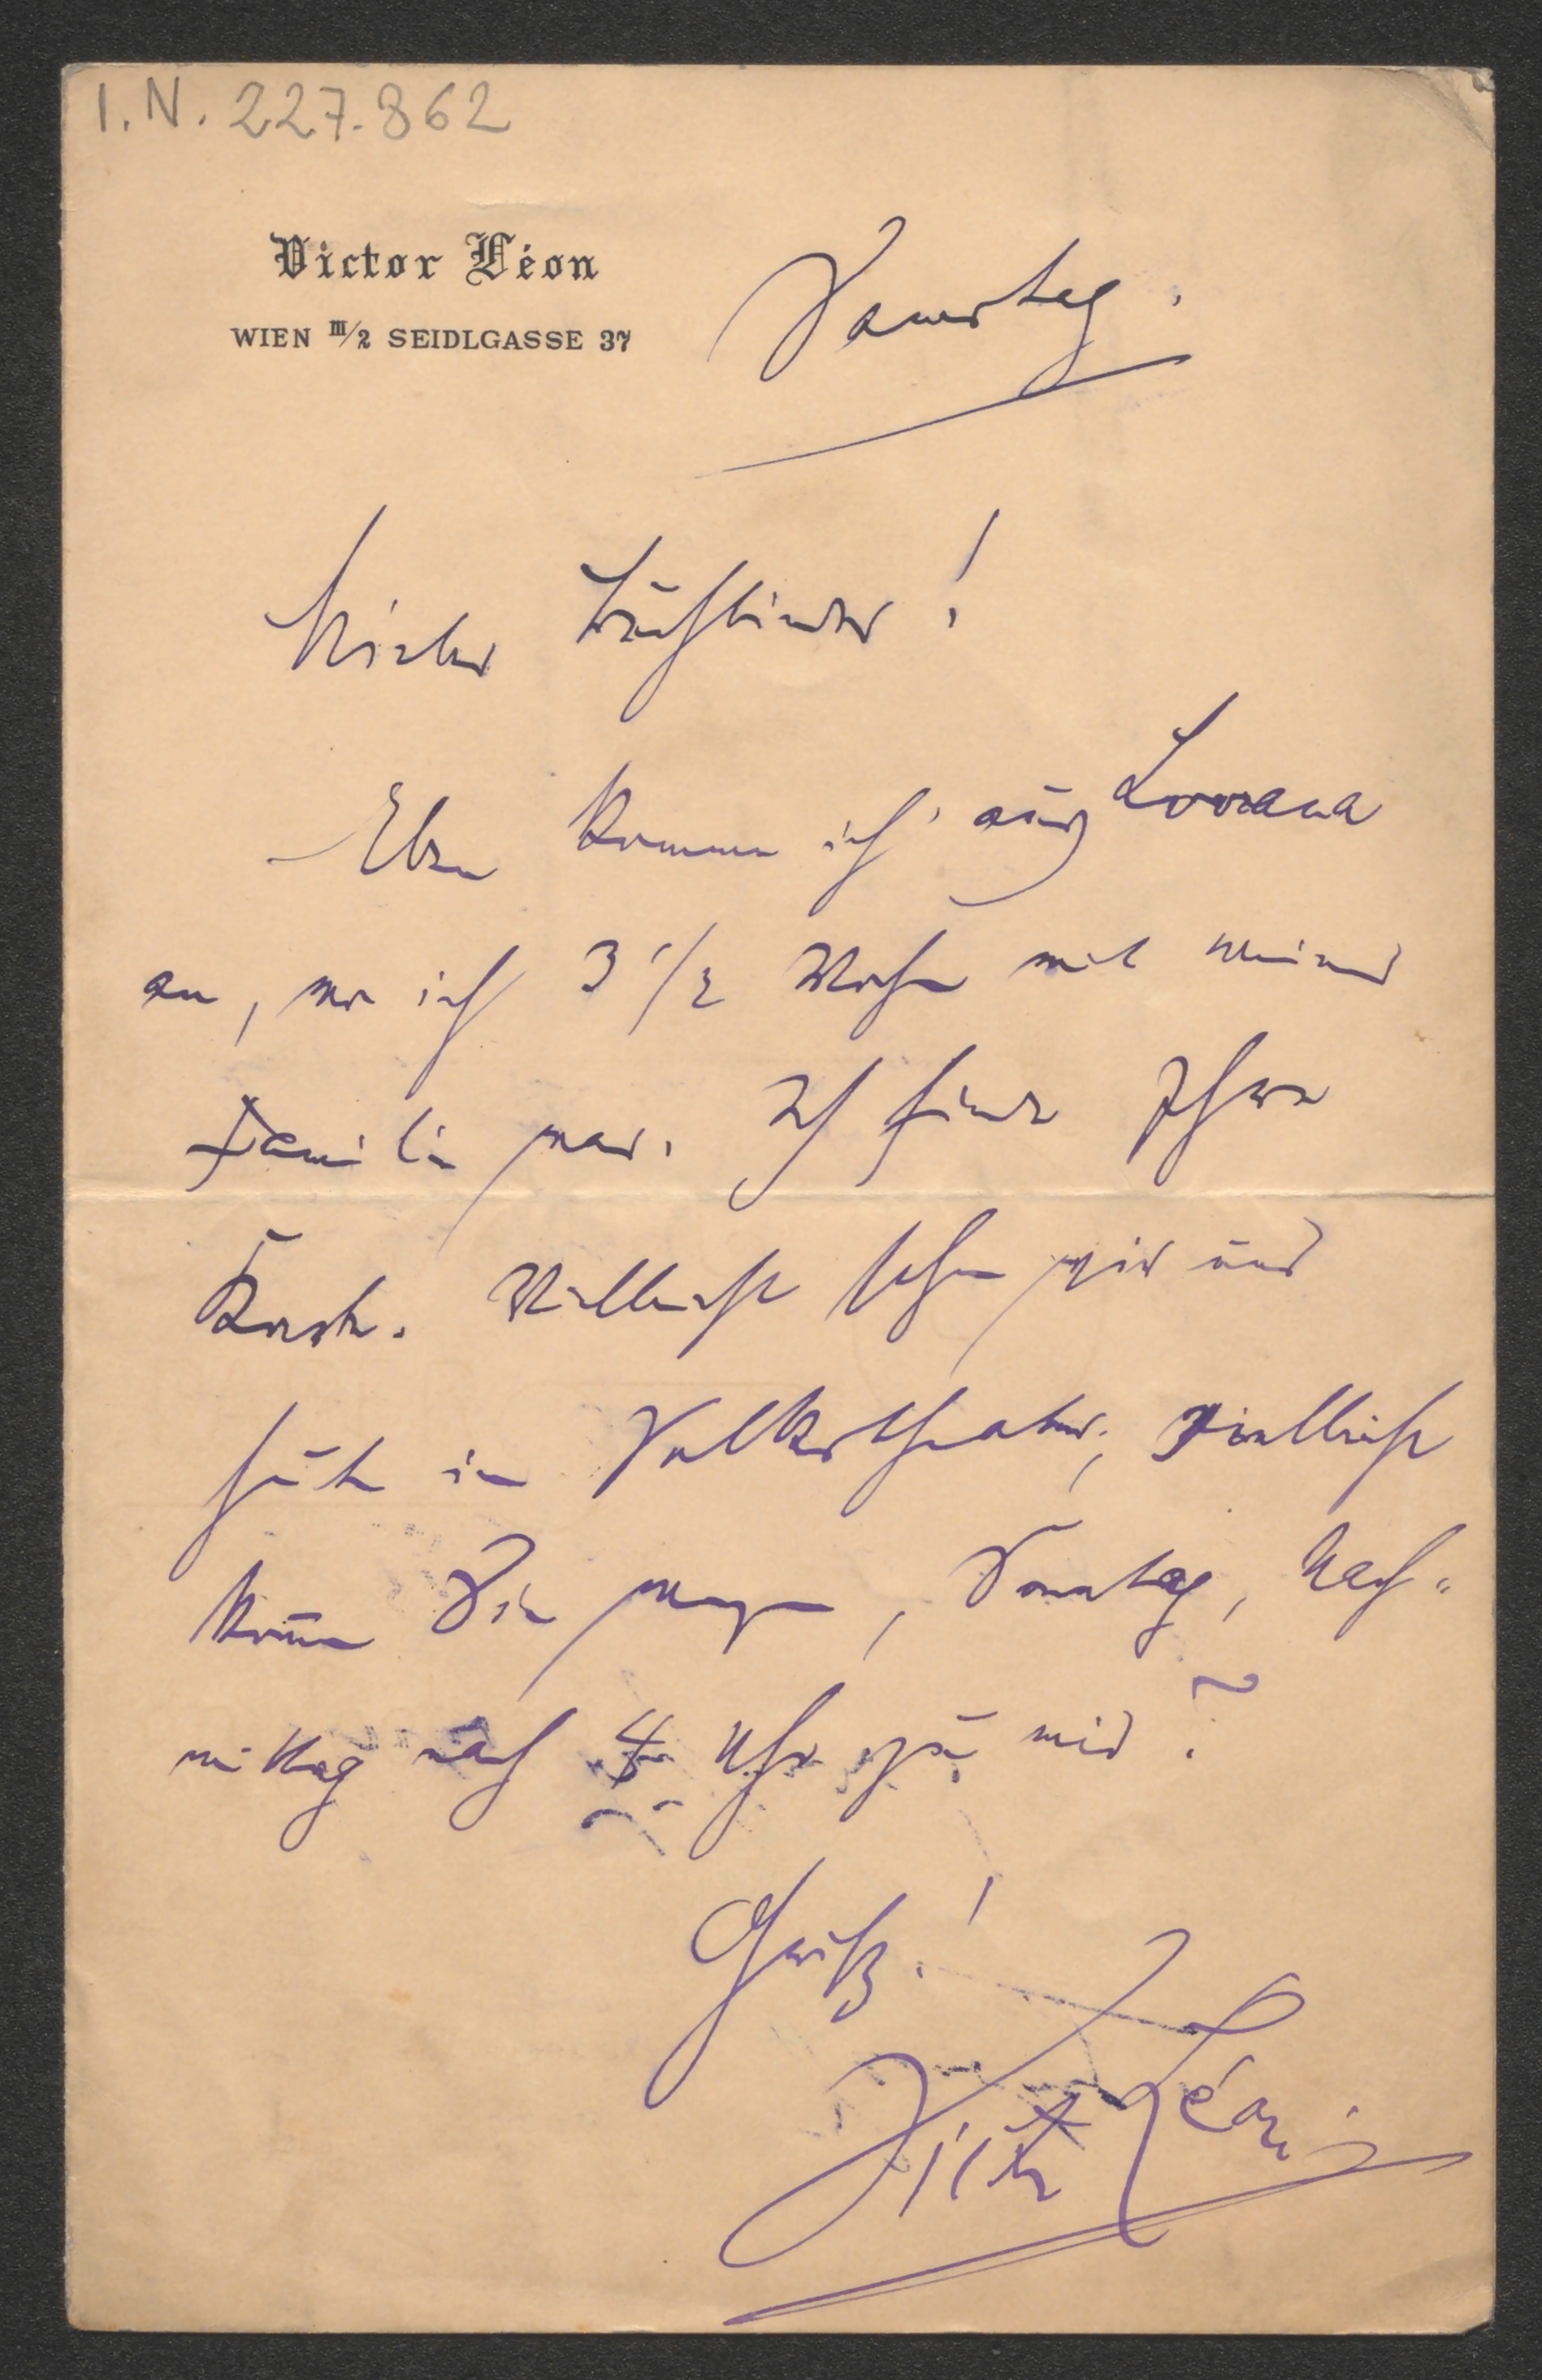 I.N. 227.862
Victor Léon
WIEN III/2 SEIDLGASSE 37
Samstag.
Lieber Buchbinder!
Eben komme ich aus Lovrana
an, wo ich 3 1/2 Wochen mit meiner
Familie war. Ich finde Ihre
Karte. Vielleicht sehen wir uns
heute im Volkstheater, vielleicht
kom̄en Sie morgen, Sonntag, Nach-
mittag nach 4 Uhr zu mir?
Gruß!
Victor Léon